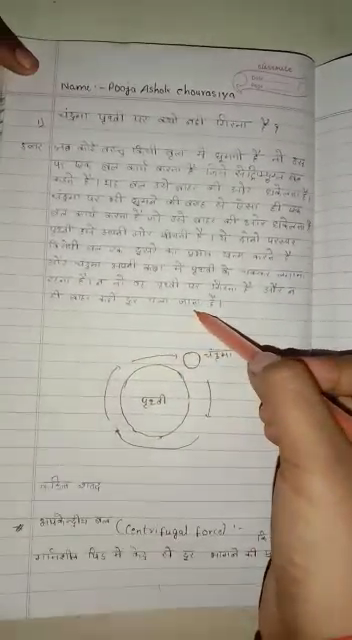 classmate
Date
Page
Name :- Pooja Ashok Chourasiya
1) चंद्रमा पृथ्वी पर क्यों नही गिरता है ?
उत्तर जब कोई वस्तु किसी वृत्त में घूमती है तो उस
पर एक बल कार्य करता है
करते है। यह बल उसे बाहर की ओर धकेलता है।
चंद्रमा पर भी घूमने की वजह से ऐसा ही एक
बल कार्य करता है जो उसे बाहर की ओर धकेलता है
पृथ्वी उसे अपनी ओर खींचती है। ये दोनो परस्पर
विरोधी बल एक दूसरे का प्रभाव खत्म करते है
और चंद्रमा अपनी कक्षा में पृथ्वी के चक्कर लगाता
रहता है। न तो वह पृथ्वी पर गिरता है और न
ही कही दूर चला जाता है।
चंद्रमा
पृथ्वी
# अपकेन्द्रीय बल (Centrifugal force) :-
कि
गतिशील पिंड में केंद्र से दूर भागने की